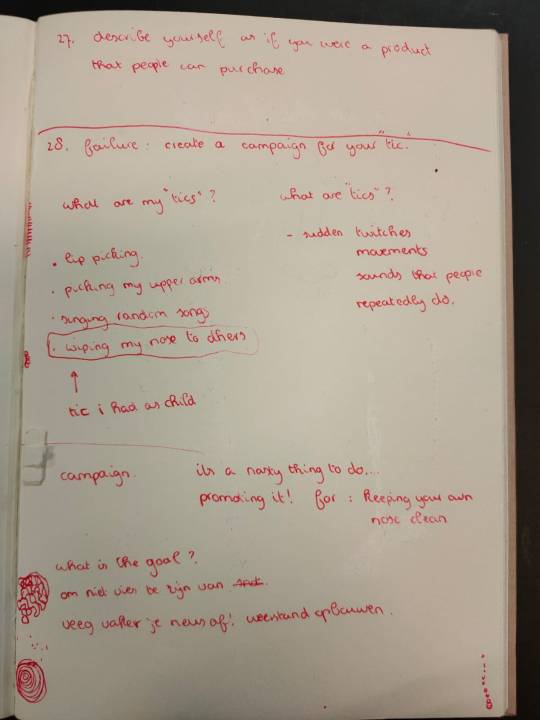 27. describe yourself as if you were a product
that people can purchase
28. failure: create a campaign for your "tic."
what are my "tics"?
• lip picking.
• picking my upper arms.
• singing random songs
• wiping my nose to others
↑
tic i had as child
what are "tics"?
- sudden twitches
movements
sounds that people
repeatedly do.
campaign.
its a nasty thing to do....
promoting it! for: keeping your own
nose clean
what is the goal?
om niet vies te zijn van snot.
veeg vaker je neus af! weerstand opbouwen.